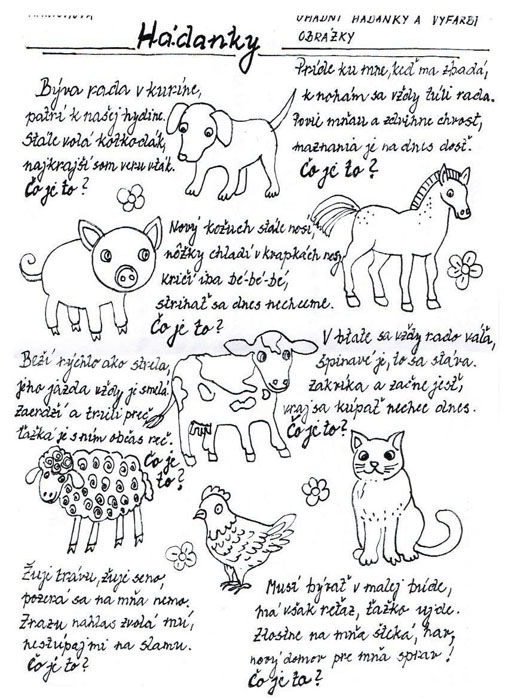 UHÁDNI HÁDANKY A VYFARBI
OBRÁZKY
Hádanky
Býva rada v kuríne,
patrí k našej hydine.
Stále volá kotkodák,
najkrajší som veru vták.
Čo je to?
Príde ku mne, keď ma zbadá,
k nohám sa vždy túli rada.
Povie mňau a zdvihne chvost,
maznania je na dnes dosť.
Čo je to?
Nový kožuch stále nosí,
nôžky chladí v kvapkách rosy,
kričí iba bé-bé-bé,
strihať sa dnes nechceme.
Čo je to?
V blate sa vždy rado váľa,
špinavé je, to sa stáva.
zakvíka a začne jesť,
vraj sa kúpať nechce dnes.
Čo je to?
Beží rýchlo ako strela,
jeho jazda vždy je smelá.
zaerdží a trieli preč,
ťažká je s ním občas reč.
Čo je
to?
Žuje trávu, žuje seno,
pozerá sa na mňa nemo.
Zrazu nahlas zvolá mú,
nestúpaj mi na slamu.
Čo je to?
Musí bývať v malej búde,
má však reťaz, ťažko ujde.
Zlostne na mňa šteká, hav,
nový domov pre mňa sprav!
Čo je to?